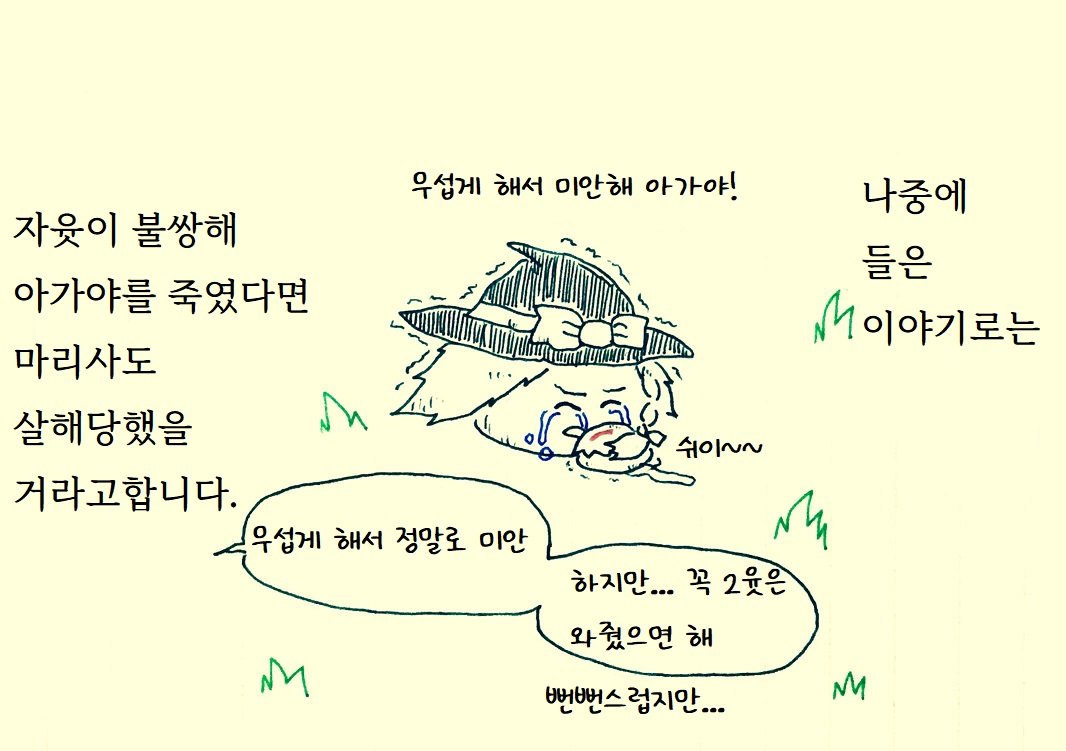 나중에
들은
이야기로는
무섭게 해서 미안해 아가야!
자윳이 불쌍해
아가야를 죽였다면
마리사도
살해당했을
거라고합니다.
쉬이~~
무섭게 해서 정말로 미안
하지만... 꼭 2윳은
와줬으면 해
뻔뻔스럽지만...